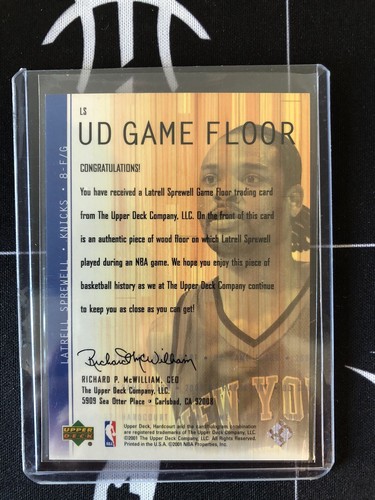 LS
UD GAME FLOOR
CONGRATULATIONS!
You have received a Latrell Sprewell Game Floor trading card
from The Upper Deck Company, LLC. On the front of this card
is an authentic piece of wood floor on which Latrell Sprewell
played during an NBA game. We hope you enjoy this piece of
basketball history as we at The Upper Deck Company continue
to keep you as close as you can get!
Richard P. McWilliam
RICHARD P. McWILLIAM, CEO
The Upper Deck Company, LLC.
5909 Sea Otter Place • Carlsbad, CA 92008
LATRELL SPREWELL • KNICKS • 8-F/G
NEW YO
UPPER DECK
Upper Deck, Hardcourt and the card/hologram combination
are registered trademarks of The Upper Deck Company, LLC.
©2001 The Upper Deck Company, LLC. All Rights Reserved.
Printed in the U.S.A. ©2001 NBA Properties, Inc.